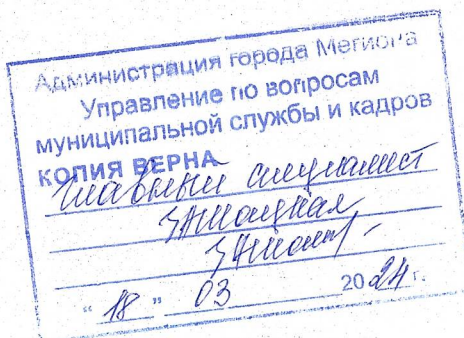 Администрация города Мегиона
Управление по вопросам
муниципальной службы и кадров
КОПИЯ ВЕРНА
Главный специалист
" 18 " 03 2024 г.